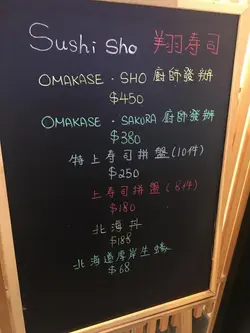 Sushi Sho 翔羽寿司
OMAKASE · SHO 廚師發辦
$450
OMAKASE · SAKURA 廚師發辦
$380
特上寿司拼盤(10件)
$250
上寿司拼盤(8件)
$180
北海丹
$188
北海道厚岸生蠔
$68